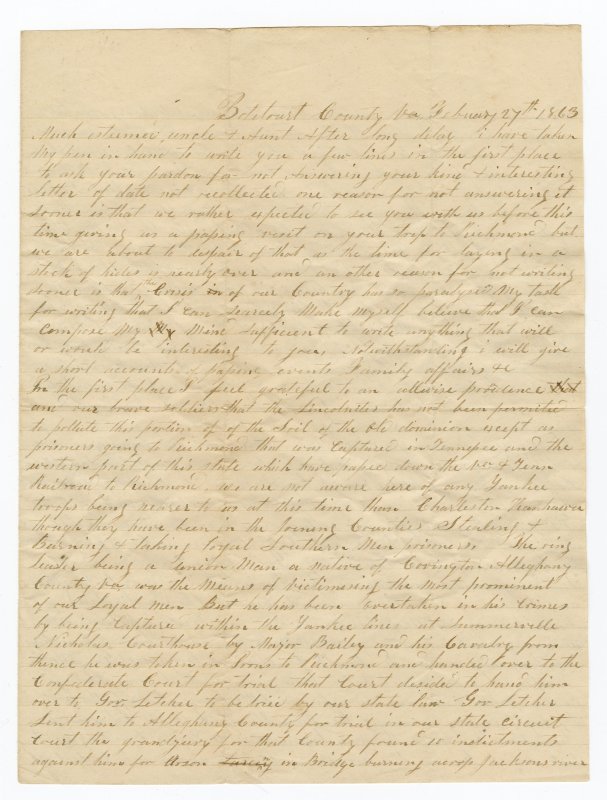 Botetourt County Va February 27th 1863
Much esteemed uncle & Aunt After long delay i have taken
My pen in hand to write you a few lines in the first place
to ask your pardon for not answering your kind & interesting
letter of date not recollected one reason for not answering it
sooner is that we rather expected to see you with us before this
time giving us a passing visit on your trip to Richmond but
we are about to despair of that as the time for laying in a
stock of hides is nearly over and an other reason for not writing
sooner is that the Crisis in of our Country has so paralysed My task
for writing that I can scarcely Make Myself believe that I can
compose My My Mind sufficient to write anything that will
or would be interesting to you Notwithstanding i will give
a short account of passing events Family affairs &c
In the first place I feel grateful to an allwise providence
and our brave soldiers that the Lincolnites has not been permitted
to pollute this portion of of the Soil of the Old dominion except as
prisoners going to Richmond that was Captured in Tennessee and the
western part of this state which have passed down the Va & Tenn
Railroad to Richmond we are not aware here of any Yankee
troops being nearer to us at this time than Charleston Kanhawa
though they have been in the joining Counties Stealing &
Burning & taking loyal Southern Men prisoners. The ring
leader being a union Man a native of Covington Alleghany
County Va was the Means of victimising the most prominent
of our Loyal men But he has been overtaken in his Crimes
by being Captured within the Yankee lines at Summerville
Nicholas Courthouse by Major Bailey and his Cavalry from
thence he was taken in Irons to Richmond and handed over to the
Confederate Court for trial that Court decided to hand him
over to Gov Letcher to be tried by our state law Gov Letcher
Sent him to Alleghany County for trial in our state circuit
Court the grandjury for that County found 10 indictments
against him for Arson Larceny in Bridge burning across Jacksons river